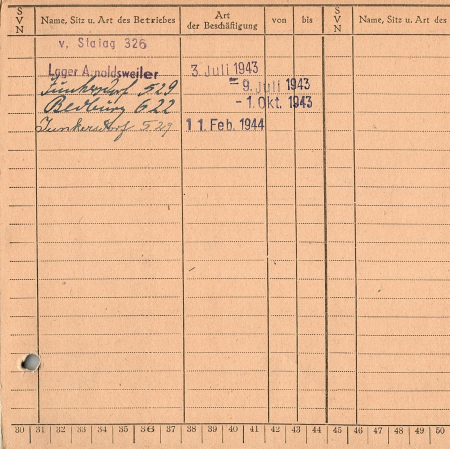 SVN Name, Sitz u. Art des Betriebes Art der Beschäftigung von bis SVN Name, Sitz u. Art des
v. Stalag 326
Lager Arnoldsweiler 3. Juli 1943
Junkersdorf 529 = 9. Juli 1943
Bedburg 622 - 1. Okt. 1943
Junkersdorf 529 11. Feb. 1944
30 31 32 33 34 35 36 37 38 39 40 41 42 43 44 45 46 47 48 49 50